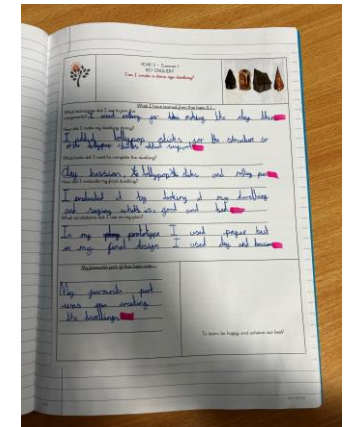 YEAR 3 - Summer 1
KEY ENQUIRY
Can I create a stone age dwelling?
What I have learned from this topic is:
What techniques did I use to join the
components? I used rolling for the making the clay
How did I make my dwelling strong?
I added lollypop sticks for the structure so
the lollypop sticks
What tools did I need to complete the dwelling?
Clay, hessian, lollypop sticks and rolling
How did I evaluate my final dwelling?
I evaluated it by looking at my dwelling
and saying what's was good and bad
In my prototype I used paper but
in my final design I used clay and hessian
My favourite part of this topic was
My favourite part
was creating
the dwellings
To learn, be happy and achieve our best!